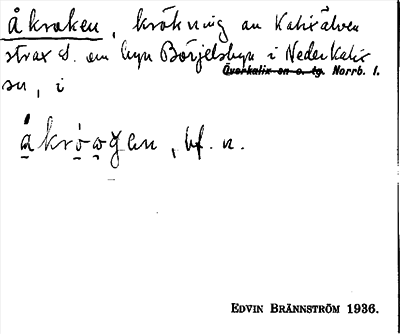 Åkroken, krökning av Kalixälven
strax S. om byn Börjelsbyn i NederKalix
Överkalix sn o. tg. Norrb. l.
sn, i
åkrowgen, bf. n.
EDVIN BRÄNNSTRÖM 1936.